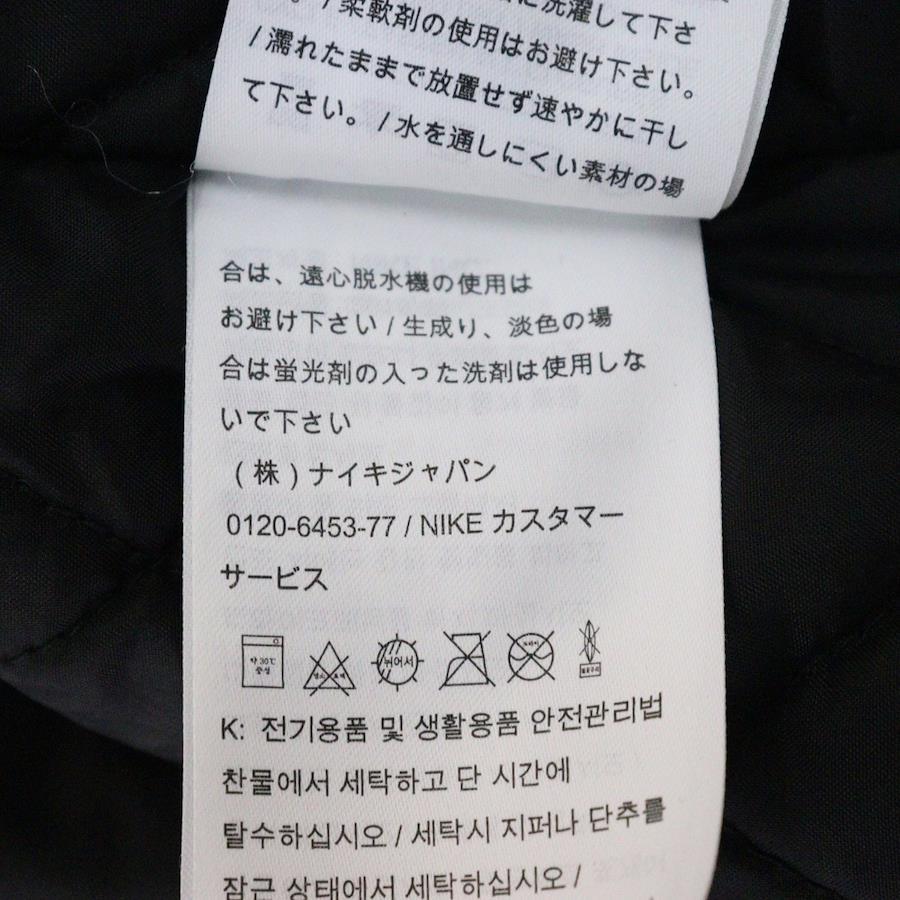 に洗濯して下さ
。/ 柔軟剤の使用はお避け下さい。
/ 濡れたままで放置せず速やかに干し
て下さい。/ 水を通しにくい素材の場
合は、遠心脱水機の使用は
お避け下さい / 生成り、淡色の場
合は蛍光剤の入った洗剤は使用しな
いで下さい
(株) ナイキジャパン
0120-6453-77 / NIKE カスタマー
サービス
약 30℃
중성
뉘어서
K: 전기용품 및 생활용품 안전관리법
찬물에서 세탁하고 단 시간에
탈수하십시오 / 세탁시 지퍼나 단추를
잠근 상태에서 세탁하십시오 /